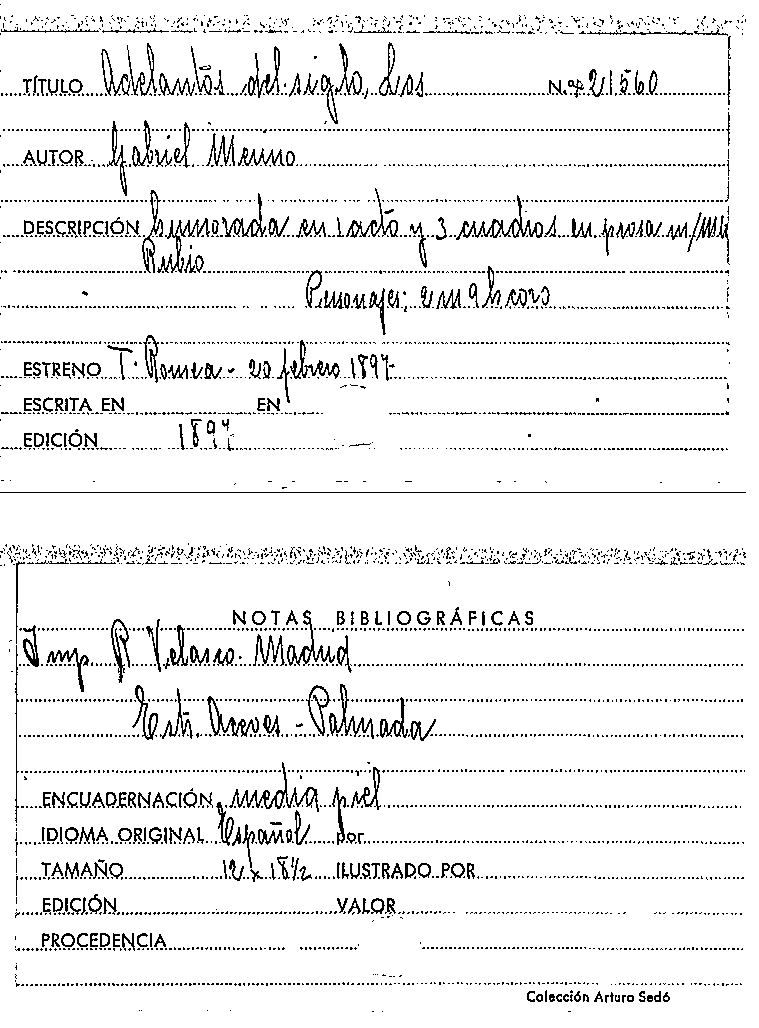 TÍTULO Adelantos del siglo, Los N.º 21560
AUTOR Gabriel Merino
DESCRIPCIÓN humorada en 1 acto y 3 cuadros en prosa m/
Rubio
Personajes: 2 m 9 h coro
ESTRENO T. Romea - 20 febrero 1897
ESCRITA EN EN
EDICIÓN 1897
NOTAS BIBLIOGRÁFICAS
Imp. R Velasco. Madrid
Estr. Arcos - Palmada
ENCUADERNACIÓN media piel
IDIOMA ORIGINAL Español por
TAMAÑO 12 x 18½ ILUSTRADO POR
EDICIÓN VALOR
PROCEDENCIA
Colección Arturo Sedó